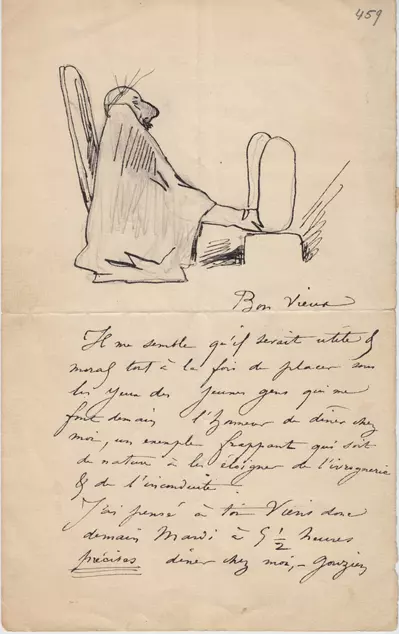 459
Bon Vieux
Il me semble qu'il serait utile &
moral tout à la fois de placer sous
les yeux des jeunes gens qui me
font demain l'honneur de dîner chez
moi, un exemple frappant qui soit
de nature à les éloigner de l'ivrognerie
& de l'inconduite.
J'ai pensé à toi Viens donc
demain Mardi à 5 1/2 heures
précises dîner chez moi, – Gouzien